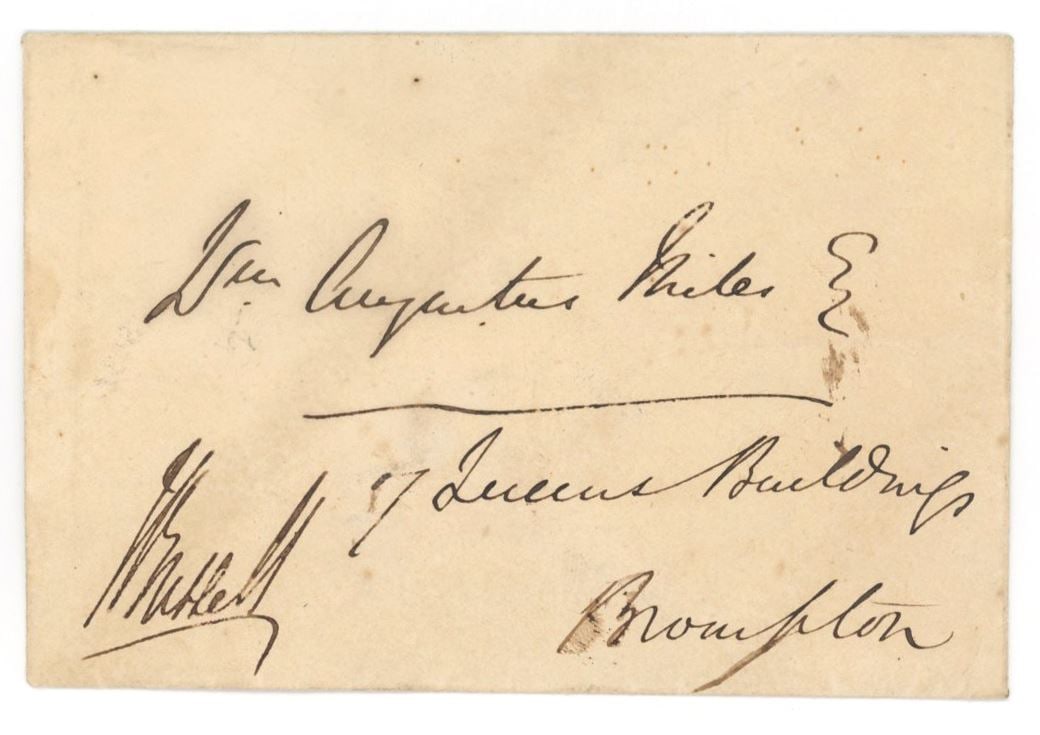 Wm Augustus Miles Esq
7 Queens Buildings
Brompton